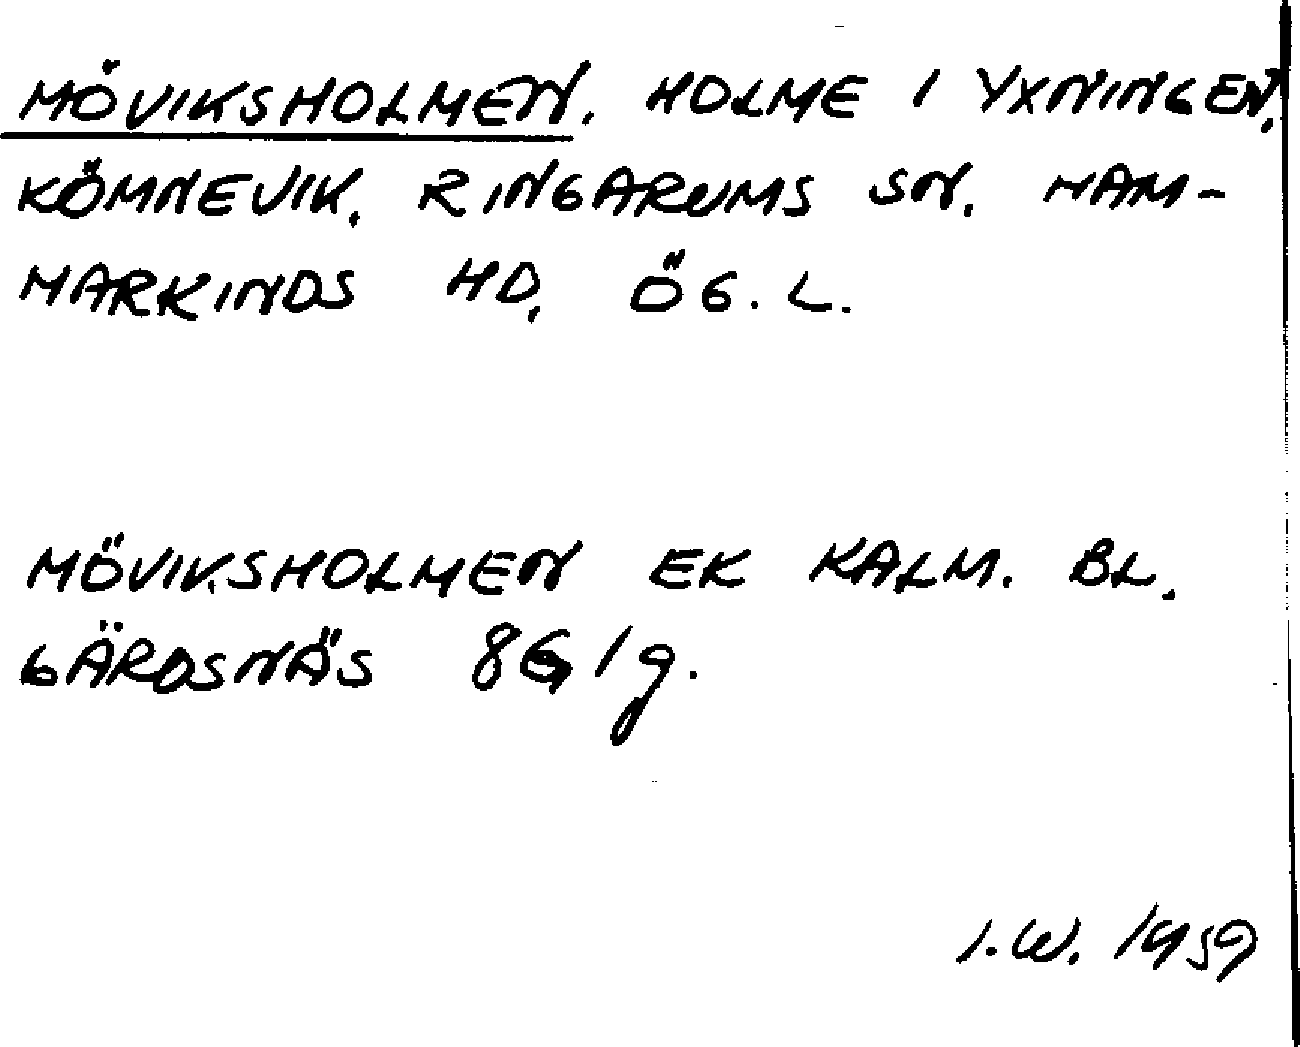 MÖVIKSHOLMEN. HOLME I YXNINGEN,
KÖMNEVIK, RINGARUMS SN. HAM-
MARKINDS HD, ÖG. L.
MÖVIKSHOLMEN EK KALM. BL.
GÄRDSNÄS 8G 1g.
I.W. 1959